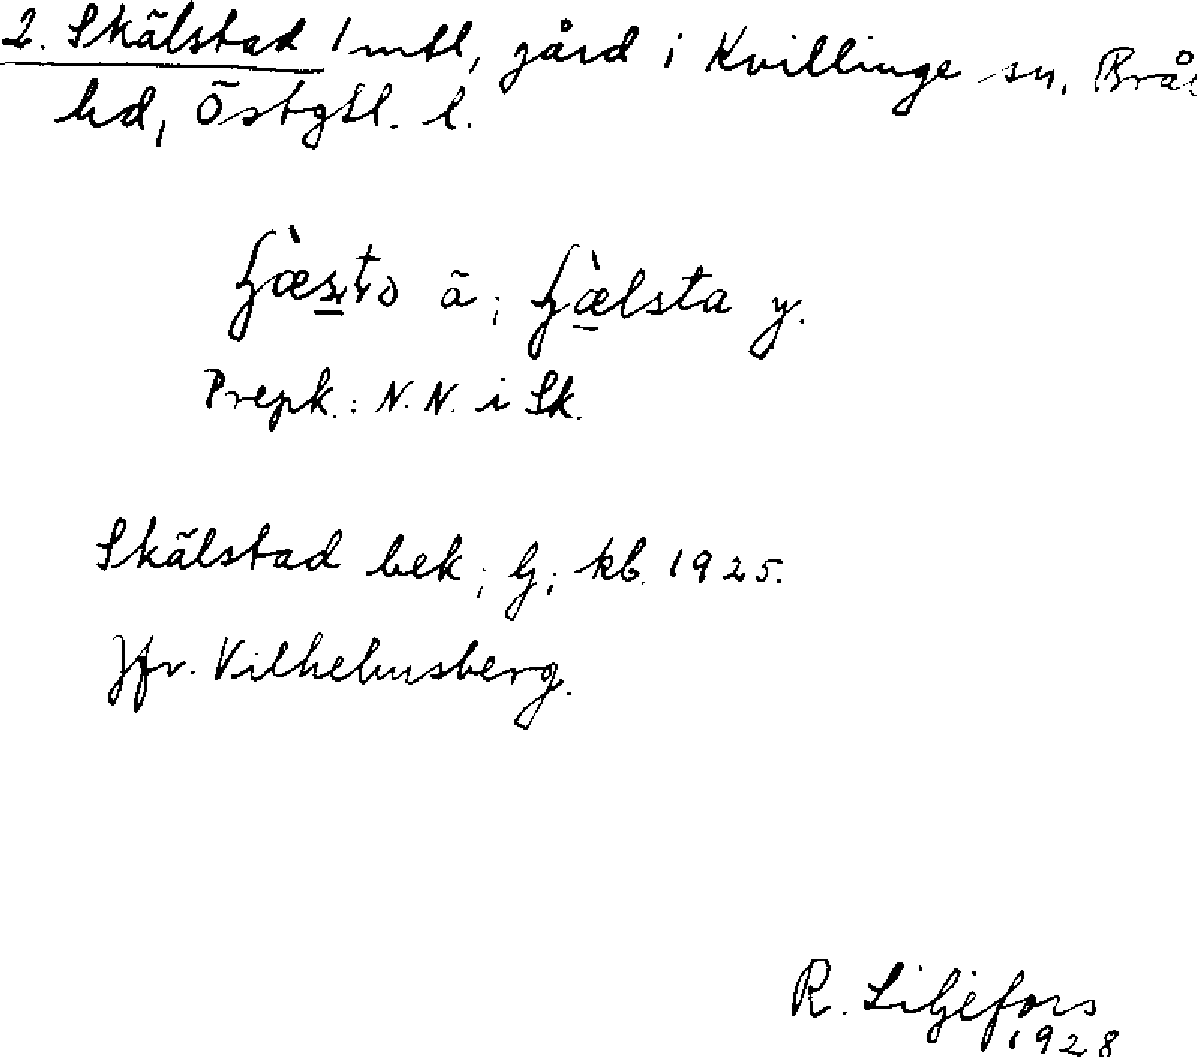 2. Skälstad 1 mtl, gård i Kvillinge sn, Brå
hd, Östgtl. l.
ä; y.
Prepk.: N. N. i Sk.
Skälstad bek; G; kb. 1925.
Jfr. Vilhelmsberg.
R. Liljefors
1928